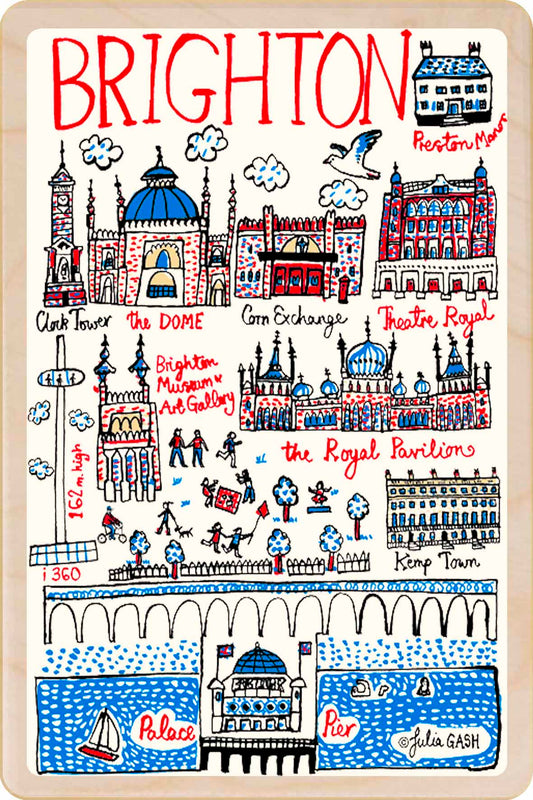 BRIGHTON
Preston Manor
Clock Tower
the DOME
Corn Exchange
Theatre Royal
Brighton
Museum &
Art Gallery
the Royal Pavilion
162 m. high
i 360
Kemp Town
Palace
Pier
© Julia GASH